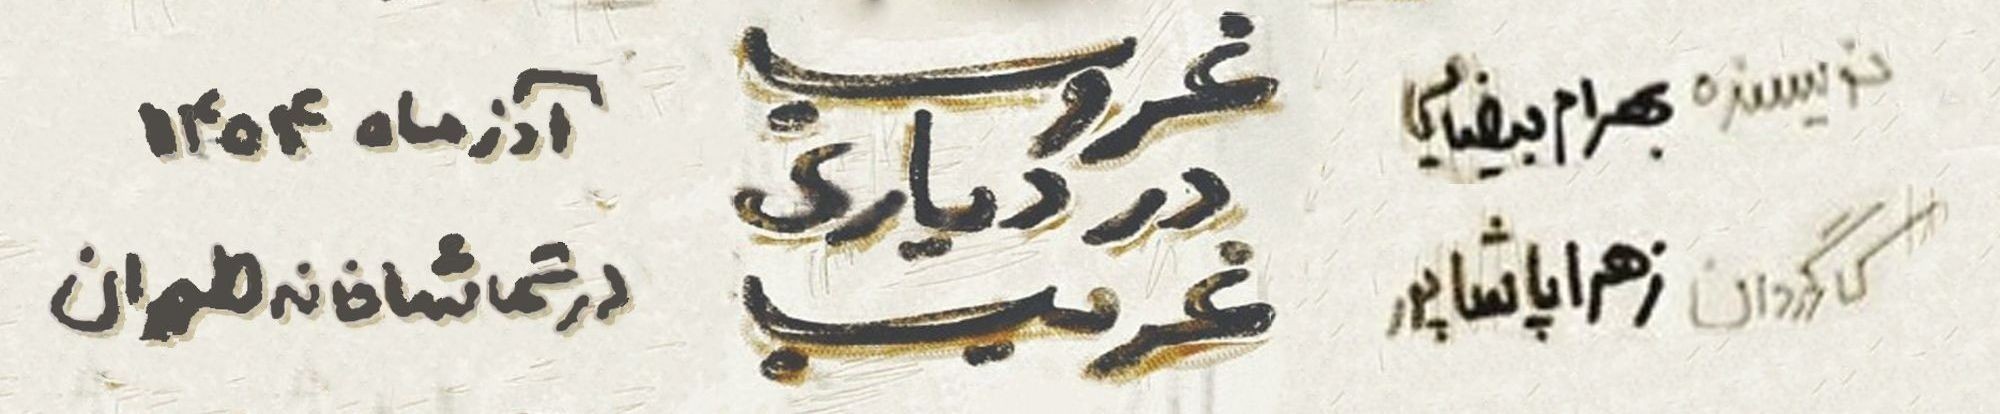 نویسنده بهرام بیضایی
کارگردان زهرا پاشاپور
غروب
در دیاری
غریب
آذر ماه ۱۴۰۴
در تماشاخانه طهران